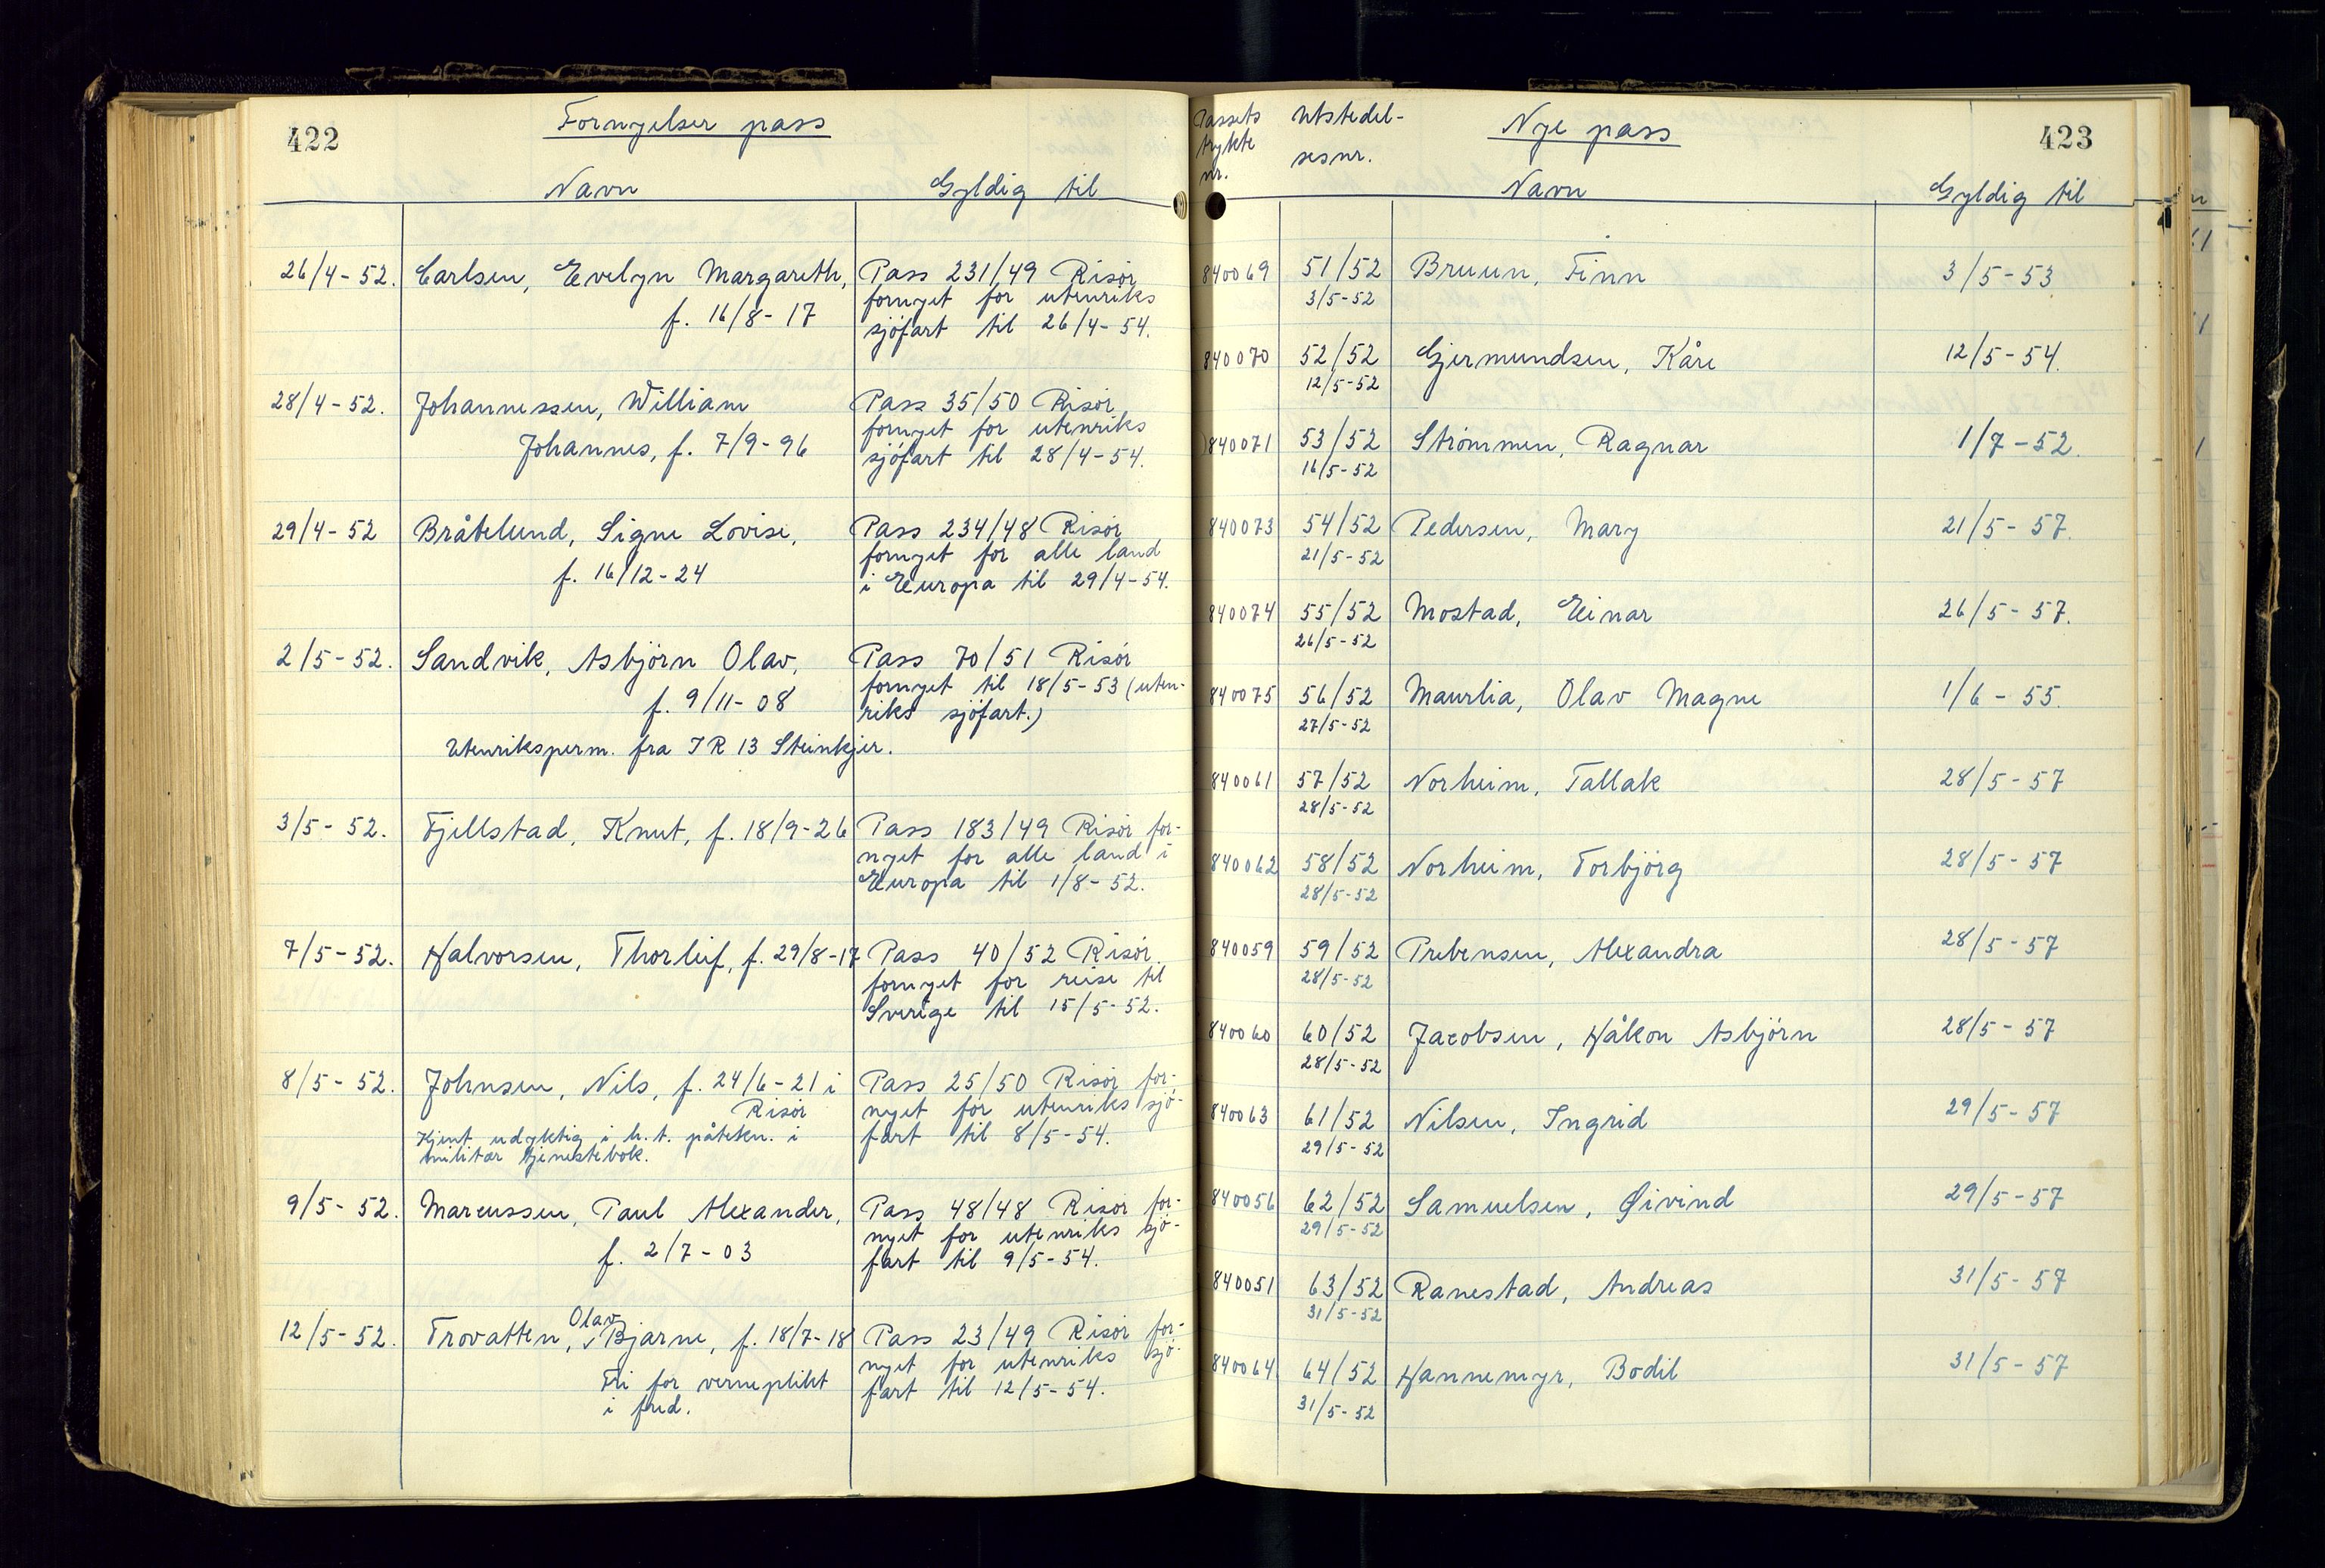 422
Fornyelser pass
Navn
Gyldig til
26/4-52.
Carlsen, Evelyn Margareth,
f. 16/8-17
Pass 231/49 Risör
fornyet for utenriks
sjöfart til 26/4-54.
28/4-52.
Johannessen, William
Johannes, f. 7/9-96
Pass 35/50 Risör
fornyet for utenriks
sjöfart til 28/4-54.
29/4-52
Bråtelund, Signe Lovise,
f. 16/12-24
Pass 234/48 Risör
fornyet for alle land
i Europa til 29/4-54.
2/5-52.
Sandvik, Asbjörn Olav,
f. 9/11-08
Utenriksperm. fra IR 13 Steinkjer.
Pass 70/51 Risör
fornyet til 18/5-53 (uten-
riks sjöfart.)
3/5-52.
Fjellstad, Knut, f. 18/9-26
Pass 183/49 Risör for-
nyet for alle land i
Europa til 1/8-52.
7/5-52.
Halvorsen, Thorleif, f. 29/8-17
Pass 40/52 Risör
fornyet for reise til
Sverige til 15/5-52.
8/5-52.
Johnsen, Nils, f. 24/6-21 i
Risör
Kjent udyktig i h.t. påtekn. i
militær tjenestebok.
Pass 25/50 Risör for-
nyet for utenriks sjö-
fart til 8/5-54.
9/5-52.
Marcussen, Paul Alexander,
f. 2/7-03
Pass 48/48 Risör for-
nyet for utenriks sjö-
fart til 9/5-54.
12/5-52.
Olav
Trovatten, Bjarne, f. 18/7-18
Fri for verneplikt
i fred.
Pass 23/49 Risör for-
nyet for utenriks sjö-
fart til 12/5-54.
Passets
trykte
nr.
Utstedel-
sesnr.
Nye pass
423
Navn
Gyldig til
840069 51/52 Bruun, Finn 3/5-53
3/5-52
840070 52/52 Gjermundsen, Kåre 12/5-54.
12/5-52
840071 53/52 Strömmen, Ragnar 1/7-52.
16/5-52
840073 54/52 Pedersen, Mary 21/5-57.
21/5-52
840074 55/52 Mostad, Einar 26/5-57.
26/5-52
840075 56/52 Maurlia, Olav Magne 1/6-55.
27/5-52
840061 57/52 Norheim, Tallak 28/5-57
28/5-52
840062 58/52 Norheim, Torbjörg 28/5-57
28/5-52
840059 59/52 Prebensen, Alexandra 28/5-57
28/5-52
840060 60/52 Jacobsen, Håkon Asbjörn 28/5-57
28/5-52
840063 61/52 Nilsen, Ingrid 29/5-57
29/5-52
840056 62/52 Samuelsen, Øivind 29/5-57
29/5-52
840051 63/52 Ranestad, Andreas 31/5-57
31/5-52
840064 64/52 Hannemyr, Bodil 31/5-57
31/5-52